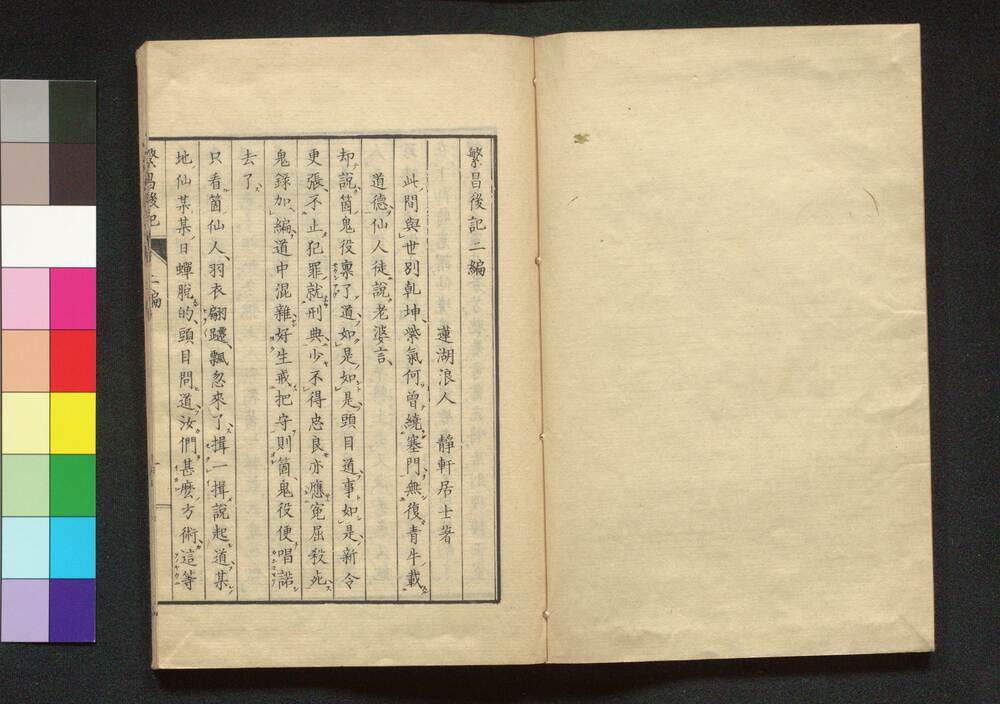 繁昌後記二編
蓮湖浪人 靜軒居士著
此間與世別乾坤紫氣何曾繞塞門無復青牛載
道德仙人徒說老婆言
却說箇鬼役稟了道如是如是頭目道事如是新令
更張不止犯罪就刑典少不得忠良亦應寃屈殺死
鬼錄加編道中混雜好生戒把守則箇鬼役便唱諾
去了
只看箇仙人羽衣翩躚飄忽來了揖一揖說起道某
地仙某某日蟬脫的頭目問道汝們甚麼方術這等
繁昌後記 二編